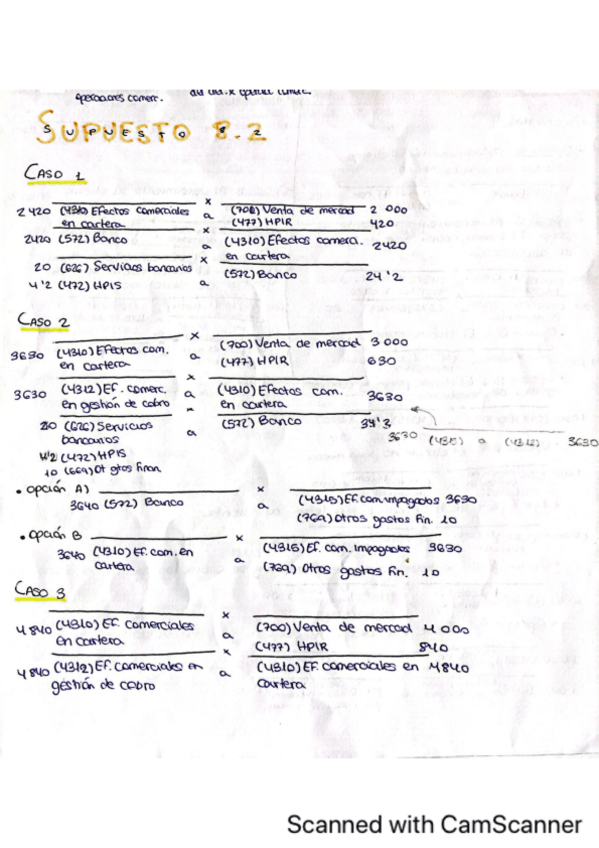 operaciones comerc.
SUPUESTO 8.2
CASO 1
x
2420 (4310) Efectos comerciales en cartera a (700) Venta de mercad 2 000
(477) HPIR 420
x
2420 (572) Banco a (4310) Efectos comerc. en cartera 2420
x
20 (626) Servicios bancarios (572) Banco 24'2
4'2 (472) HPIS a
CASO 2
x
3630 (4310) Efectos com. en cartera a (700) Venta de mercad 3 000
(477) HPIR 630
x
3630 (4312) Ef. comerc. en gestión de cobro a (4310) Efectos com. en cartera 3630
x
20 (626) Servicios bancarios a (572) Banco 34'3
3630 (4315) a (4312) 3630
4'2 (472) HPIS
10 (669) Ot gtos finan.
• opción A)
x
3640 (572) Banco a (4315) Ef. com. impagados 3630
(769) Otros gastos fin. 10
• opción B
x
3640 (4310) Ef. com. en cartera a (4315) Ef. com. Impagados 3630
(769) Otros gastos fin. 10
CASO 3
x
4 840 (4310) Ef. comerciales en cartera a (700) Venta de mercad 4 000
(477) HPIR 840
x
4 840 (4312) Ef. comerciales en gestión de cobro a (4310) Ef. comerciales en cartera 4840
Scanned with CamScanner